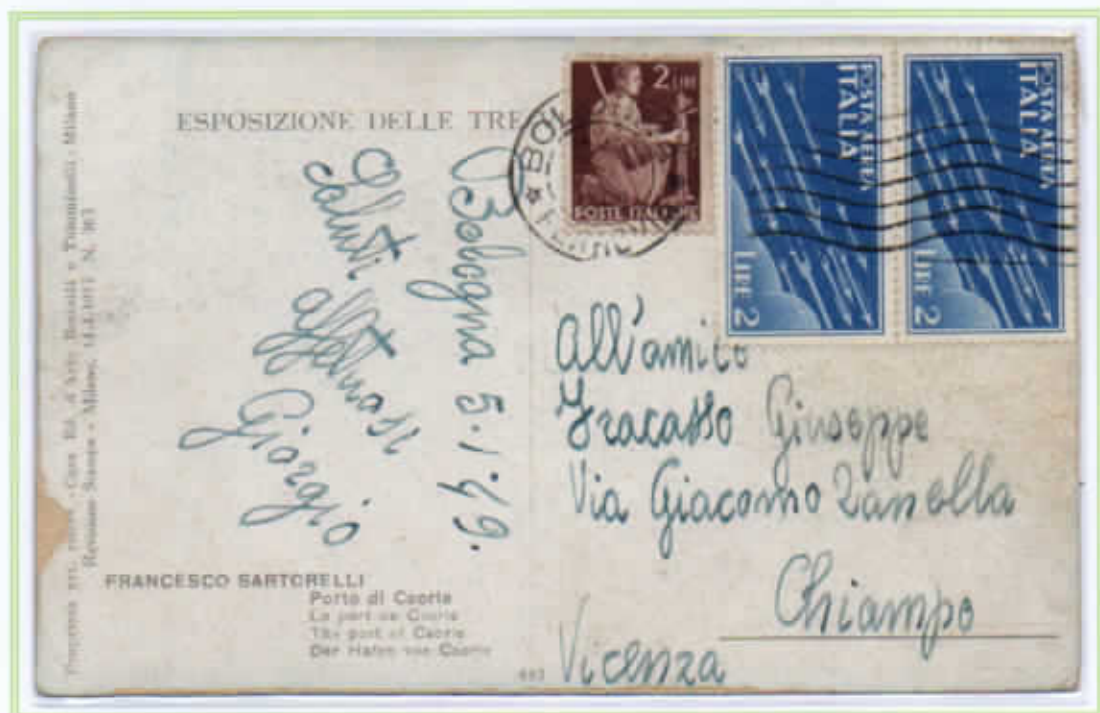 ESPOSIZIONE DELLE TRE
Bologna 5.1.49.
Saluti affettuosi
Giorgio
2 LIRE
POSTE ITALIANE
POSTA AEREA
ITALIA
LIRE 2
POSTA AEREA
ITALIA
LIRE 2
BOL
All'amico
Fracasso Giuseppe
Via Giacomo Zanella
Chiampo
Vicenza
FRANCESCO SARTORELLI
Porto di Caorle
Le port de Caorle
The port of Caorle
Der Hafen von Caorle
Bestetti e Tumminelli - Milano